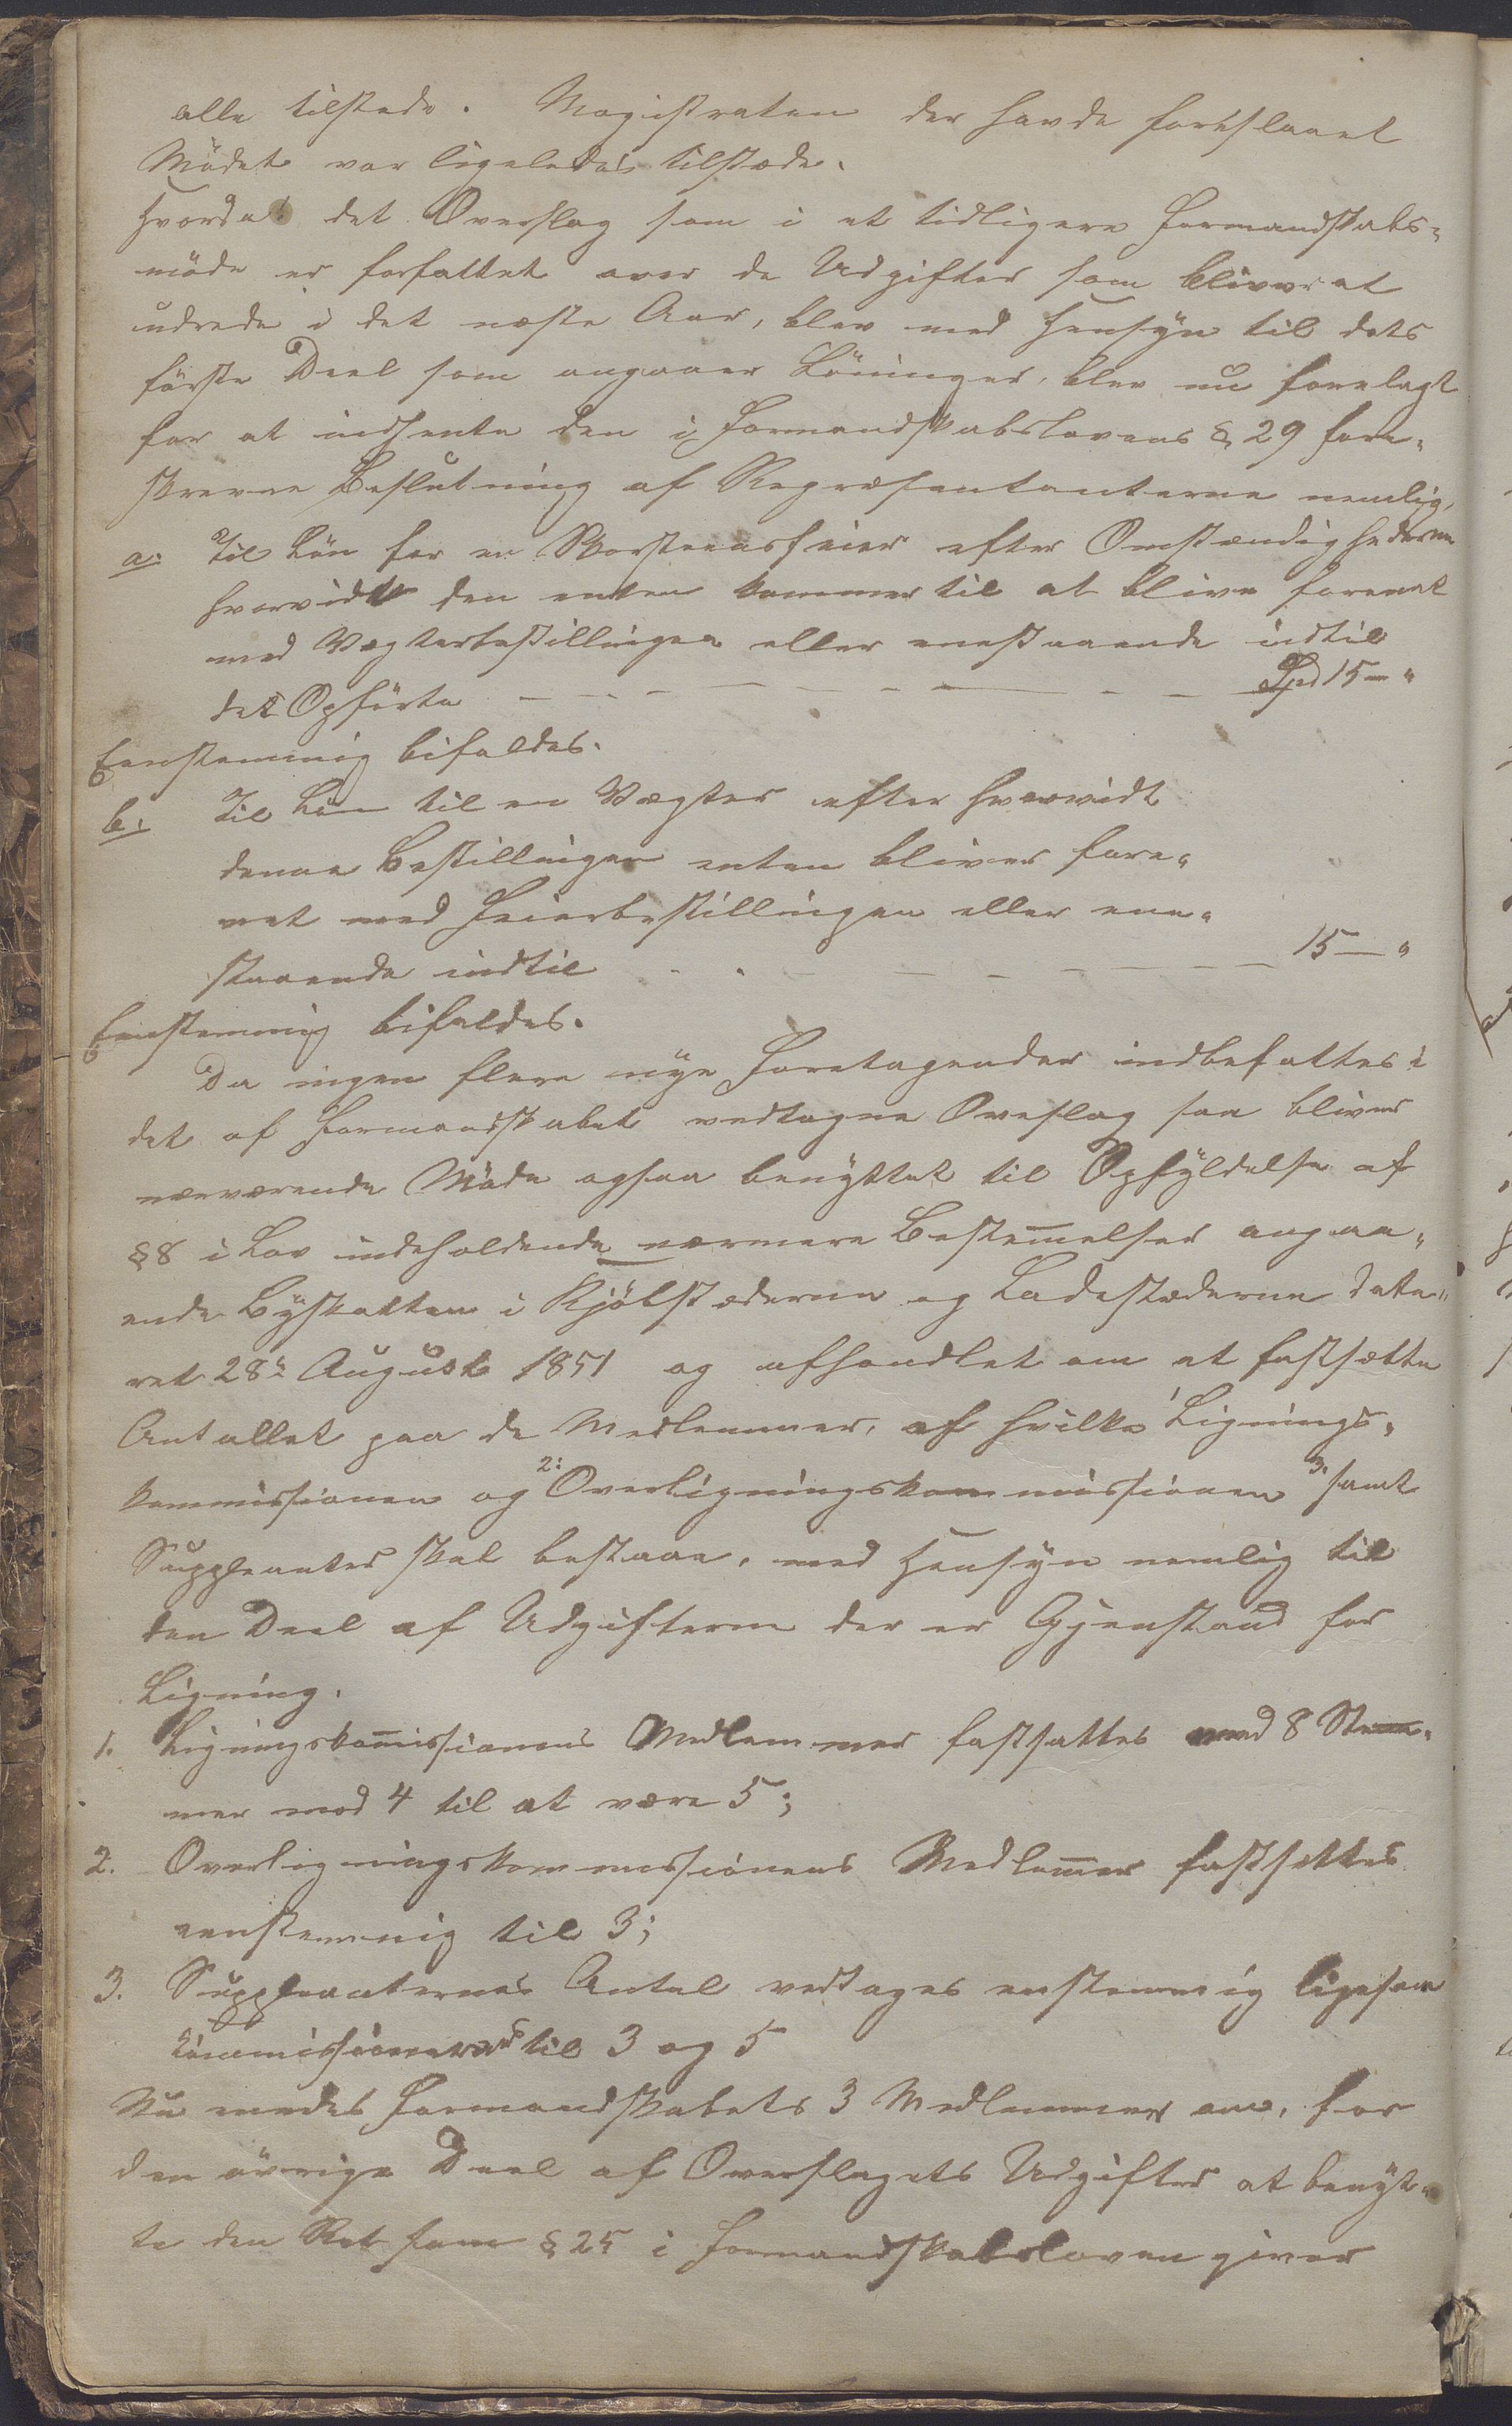 alle tilstede. Magistraten der havde foreslaaet
Mödet var ligeledes tilstede.
Hvorda det Overslag som i et tidligere Formandskabs-
möde er forfattet over de Udgifter som bliver at
udrede i det næste Aar, blev med Hensyn til dets
förste Deel som angaaer Löninger, blev nu forelagt
for at indhente den i Formandskabslovens § 29 fore-
skrevne Beslutning af Repræsentanterne nemlig,
a. Til Lön for en Skorsteensfeier efter Omstændighederne
hvorvidt den enten kommer til at blive forenet
med Vægterbestillingen eller enestaaende indtil
det Opförte — — — — — — — Spd 15 — "
Eenstemmig bifaldes.
b. Til Lön til en Vægter efter hvorvidt
denne Bestillingen enten bliver fore-
net med Feierbestillingen eller ene-
staaende indtil - - — — — — — — 15 — "
Eenstemmig bifaldes.
Da ingen flere nye Foretagender indbefattes i
det af Formandskabet vedtagne Overslag saa bliver
nærværende Möde ogsaa benyttet til Opfyldelse af
§ 8 i Lov indeholdende nærmere Bestem̅elser angaa-
ende Byskatten i Kjöbstæderne og Ladestæderne date-
ret 28de August 1851 og afhandlet om at fastsætte
Antallet paa de Medlemmer, af hvilke 1 Lignings-
kommissionen og 2: Overligningskommissionen 3. samt
Suppleanter skal bestaae, med Hensyn nemlig til
den Deel af Udgifterne der er Gjenstand for
Ligning.
1. Ligningskom̅issionens Medlemmer fastsattes med 8 Stem-
mer mod 4 til at være 5;
2. Overligningskommissionens Medlem̅er fastsattes
eenstemmig til 3;
3. Suppleanternes Antal vedtages enstemmig ligesom
Commissionerne til 3 og 5
Nu enedes Formandskabets 3 Medlemmer om, for
den övrige Deel af Overslagets Udgifter at benyt-
te den Ret som § 25 i Formandskabsloven giver